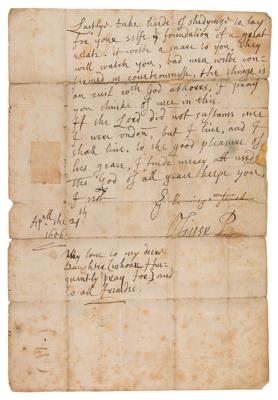 Lastlye take heede of studyinge to lay
for your selfe ye foundation of a great
estate. it wilbe a snare to you, they
will watch you, bad men wilbe con-
firmed in covetousnesse, the thinge is
an evill wch God abhorrs, I pray
you thinke of mee in this.
If the Lord did not sustaine mee
I were undon, but I live, and I
shall live. to the good pleasure of
his grace, I finde mercy att need
the God of all grace keepe you,
I rest
Aprill the 21th
1656
Oliver P
My love to my deere
daughter (whom I fre-
quently pray for) and
to all freindes.